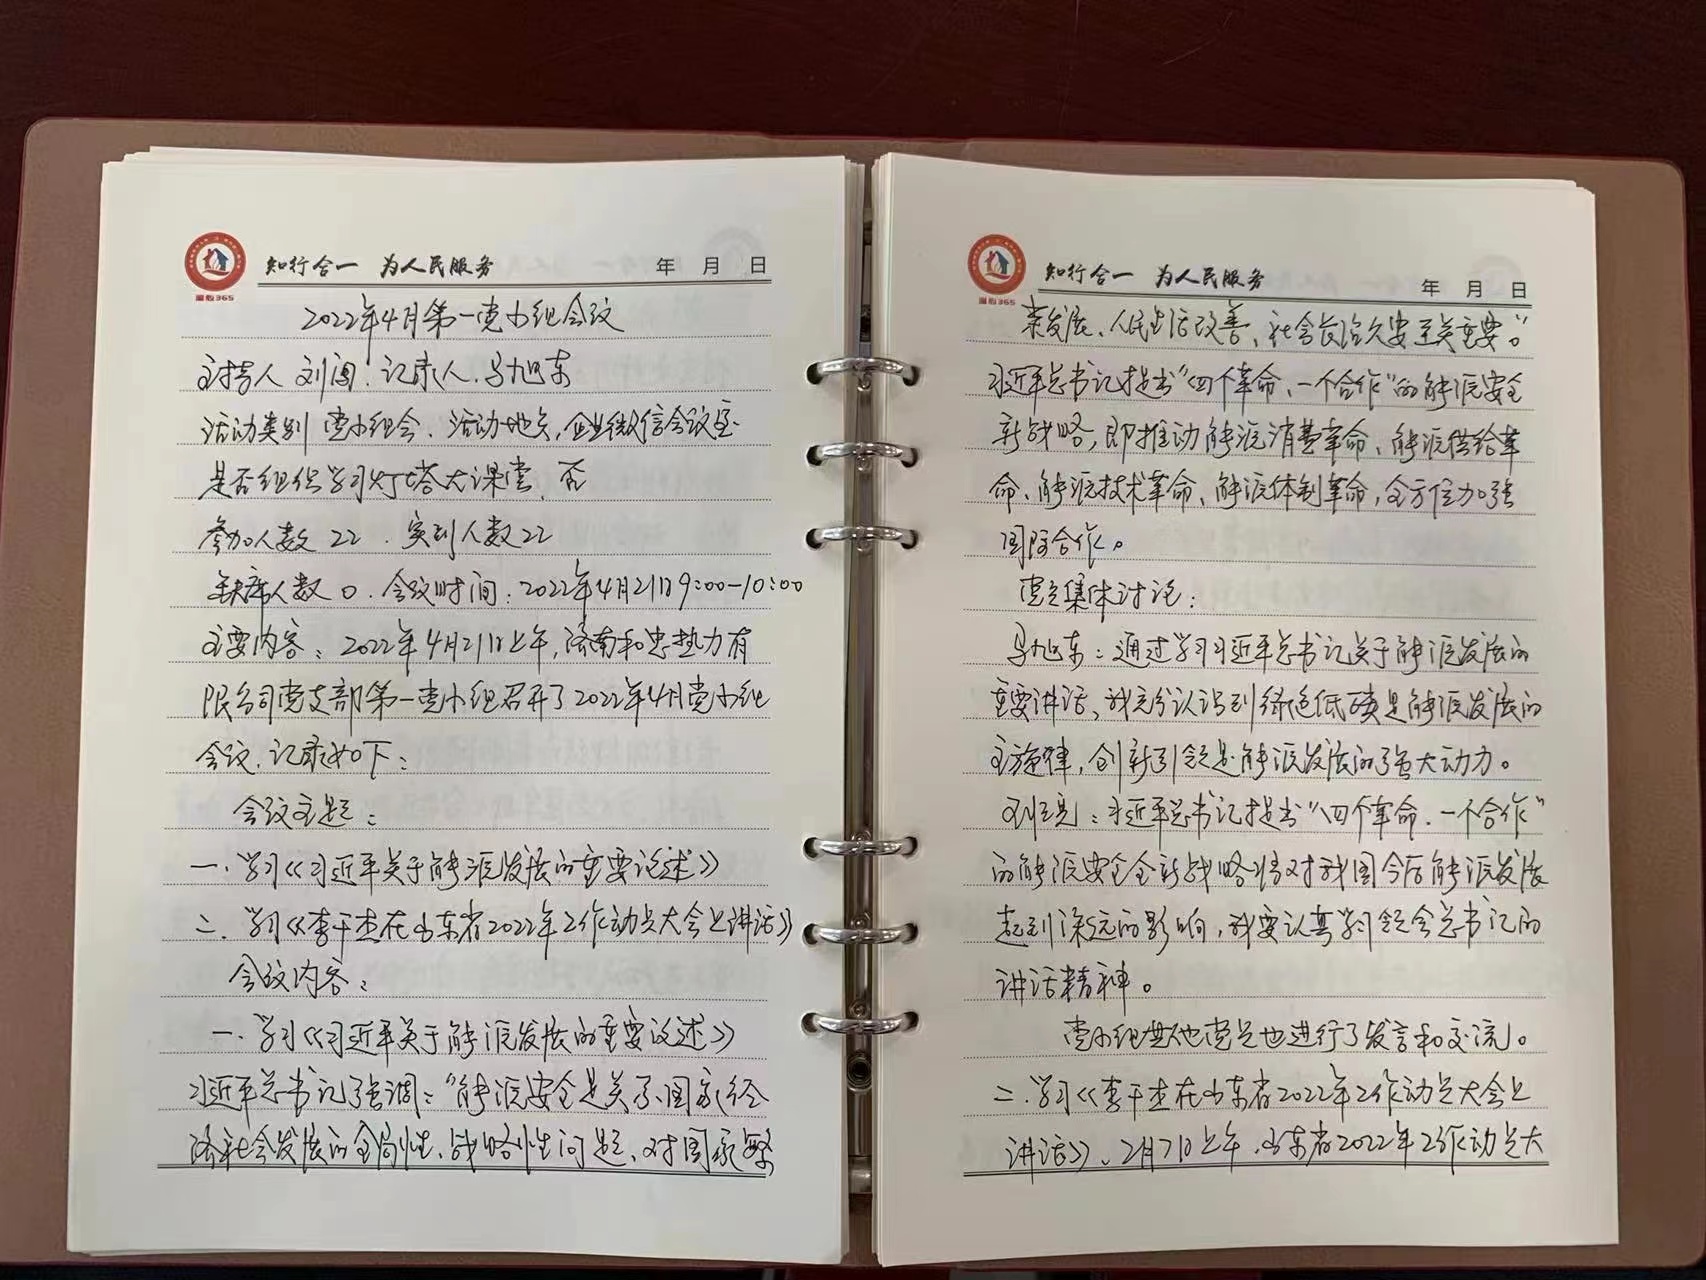 知行合一 为人民服务 年 月 日
温暖365
2022年4月第一党小组会议
主持人 刘闯. 记录人. 马旭东
活动类别 党小组会. 活动地点, 企业微信会议室
是否组织学习灯塔大课堂. 否
参加人数 22 . 实到人数22
缺席人数 0 . 会议时间: 2022年4月21日9:00-10:00
主要内容: 2022年4月21日上午, 济南和忠热力有
限公司党支部第一党小组召开了2022年4月党小组
会议. 记录如下:
会议主题:
一. 学习《习近平关于能源发展的重要论述》
二. 学习《李干杰在山东省2022年工作动员大会上讲话》
会议内容:
一. 学习《习近平关于能源发展的重要论述》
习近平总书记强调: “能源安全是关系国家经
济社会发展的全局性、战略性问题、对国家繁
知行合一 为人民服务 年 月 日
365
荣发展、人民生活改善、社会长治久安至关重要。”
习近平总书记提出“四个革命、一个合作”的能源安全
新战略, 即推动能源消费革命、能源供给革
命、能源技术革命、能源体制革命, 全方位加强
国际合作。
党员集体讨论:
马旭东: 通过学习习近平总书记关于能源发展的
重要讲话、我充分认识到绿色低碳是能源发展的
主旋律, 创新引领是能源发展的强大动力。
刘亮: 习近平总书记提出“四个革命. 一个合作”
的能源安全全新战略将对我国今后能源发展
起到深远的影响, 我要认真学习领会总书记的
讲话精神。
党小组其他党员也进行了发言和交流。
二. 学习《李干杰在山东省2022年工作动员大会上
讲话》、2月7日上午. 山东省2022年工作动员大